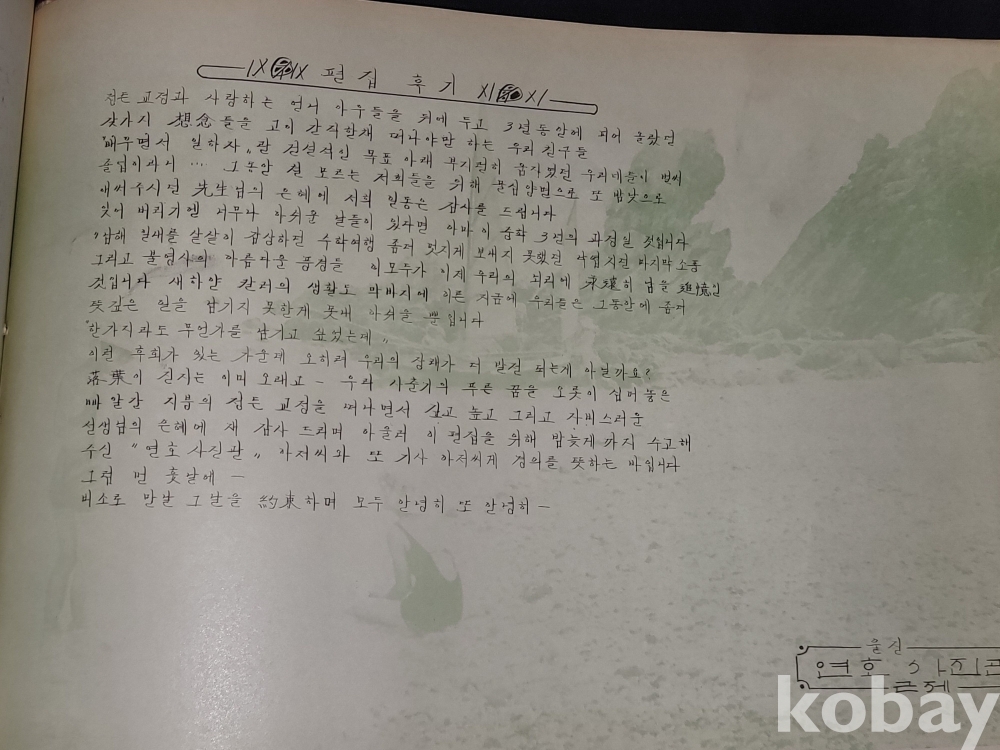 편집 후기
정든 교정과 사랑하는 언니 아우들을 뒤에 두고 3년동안에 피어 올랐던
갖가지 想念들을 고이 간직한채 떠나야만 하는 우리 친구들
"배우면서 일하자"란 건설적인 목표 아래 부지런히 움직였던 우리네들이 벌써
졸업이라니 … 그동안 철 모르는 저희들을 위해 물심양면으로 또 밤낮으로
애써주시던 先生님의 은혜에 저희 일동은 감사를 드립니다
잊어 버리기엔 너무나 아쉬운 날들이 있다면 아마 이 3년의 과정일 것입니다
남해 일대를 살살이 감상하던 수학여행 좀더 멋지게 보내지 못했던 마지막 소풍
그리고 불영사의 아름다운 풍경들 이모두가 이제 우리의 뇌리에 永遠히 남을 追憶일
것입니다 새하얀 칼라의 생활도 막바지에 이른 지금에 우리들은 그동안에 좀더
뜻깊은 일을 남기지 못한게 못내 아쉬울 뿐입니다
"한가지라도 무언가를 남기고 싶었는데"
이런 후회가 있는 가운데 오히려 우리의 상태가 더 발전 되는게 아닐까요?
落葉이 진지는 이미 오래고 - 우리 사춘기의 푸른 꿈을 오롯이 심어놓은
빠알간 지붕의 정든 교정을 떠나면서 깊고 높고 그리고 자비스러운
선생님의 은혜에 재 감사 드리며 아울러 이 편집을 위해 밤늦게까지 수고해
주신 "연호 사진관" 아저씨와 또 기사 아저씨께 경의를 뜻하는 바입니다
그럼 먼 훗날에 -
미소로 만날 그날을 約束하며 모두 안녕히 또 안녕히 -
울진
연호 사진관
kobay